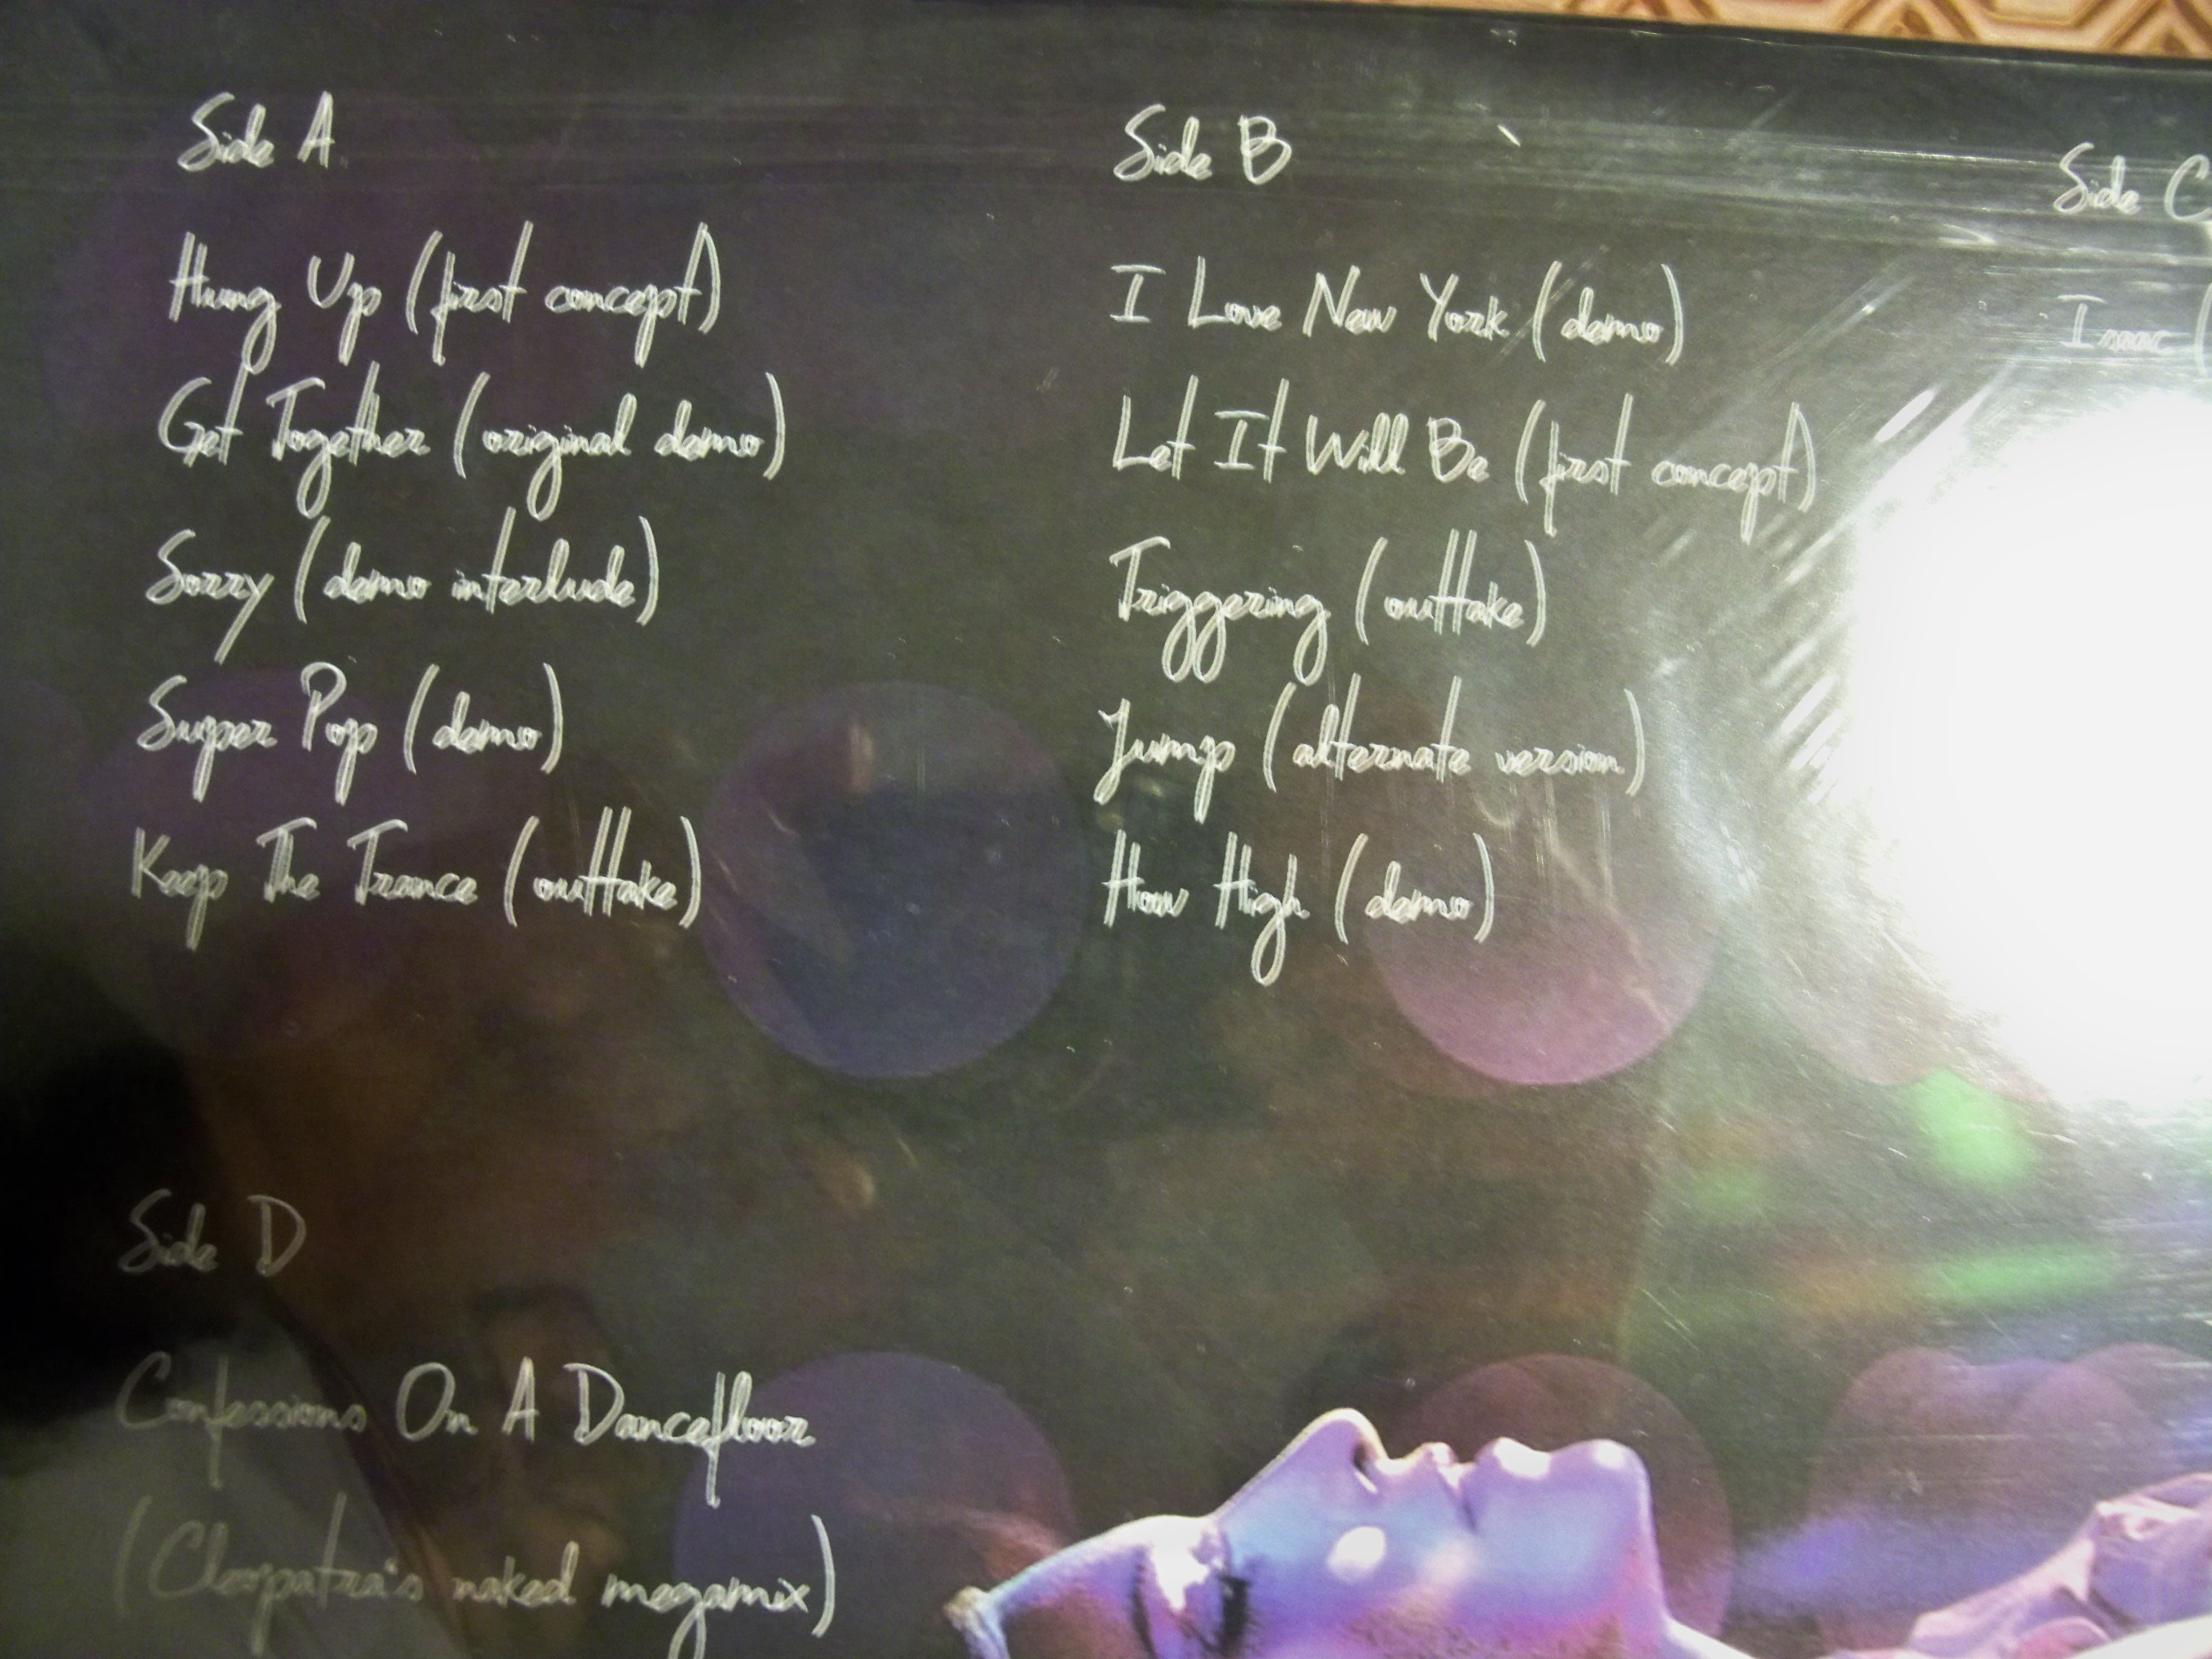 Side A
Hung Up (first concept)
Get Together (original demo)
Sorry (demo interlude)
Super Pop (demo)
Keep The Trance (outtake)
Side B
I Love New York (demo)
Let It Will Be (first concept)
Triggering (outtake)
Jump (alternate version)
How High (demo)
Side C
Isaac (
Side D
Confessions On A Dancefloor
(Cleopatra's naked megamix)